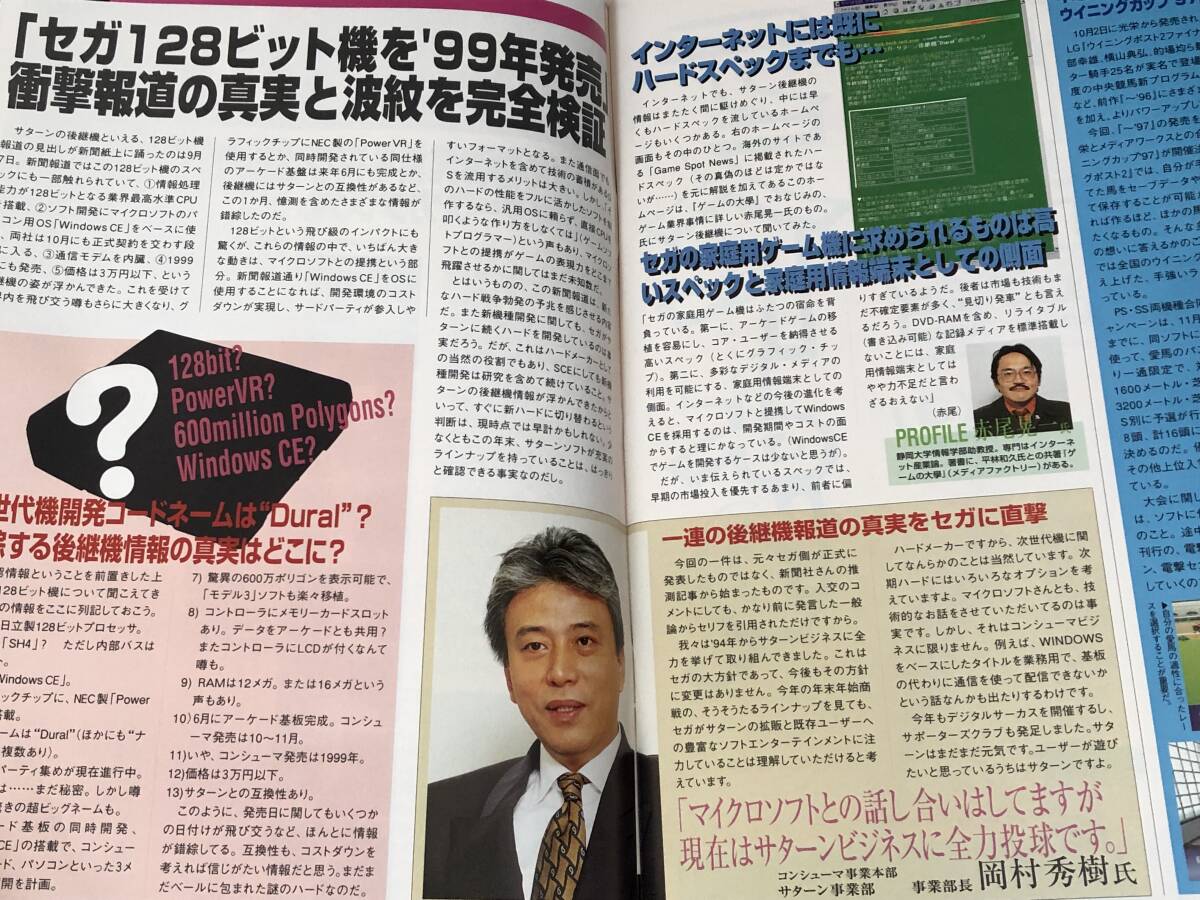 「セガ128ビット機を'99年発売」
衝撃報道の真実と波紋を完全検証
サターンの後継機といえる、128ビット機
報道の見出しが新聞紙上に踊ったのは9月
7日。新聞報道ではこの128ビット機のスペ
ックにも一部触れられていて、①情報処理
能力が128ビットとなる業界最高水準CPU
を搭載、②ソフト開発にマイクロソフトのパ
コン用OS「Windows CE」をベースに使
、両社は10月にも正式契約を交わす段
に入る、③通信モデムを内臓、④1999
にも発売、⑤価格は3万円以下、という
継機の姿が浮かんできた。これを受けて
界内を飛び交う噂もさらに大きくなり、グ
ラフィックチップにNEC製の「PowerVR」を
使用するとか、同時開発されている同仕様
のアーケード基盤は来年6月にも完成とか、
後継機にはサターンとの互換性があるなど、
この1か月、憶測を含めたさまざまな情報が
錯綜したのだ。
128ビットという飛び級のインパクトにも
驚くが、これらの情報の中で、いちばん大き
な動きは、マイクロソフトとの提携という部
分。新聞報道通り「Windows CE」をOSに
使用することになれば、開発環境のコスト
ダウンが実現し、サードパーティが参入しや
すいフォーマットとなる。また通信面でも
インターネットを含めて技術の蓄積があるM
Sを流用するメリットは大きい。しかし「そ
のハードの性能をフルに活かしたソフトを制
作するなら、汎用OSに頼らず、直接CPUを
叩くような作り方をしなくては」(ゲームソフ
トプログラマー)という声もあり、マイクロソ
フトとの提携がゲームの表現力をどこまで
飛躍させるかに関してはまだ未知数だ。
とはいうものの、この新聞報道は、新た
なハード戦争勃発の予兆を感じさせる内容
だ。また新機種開発に関しても、セガがサ
ターンに続くハードを開発しているのは事
実だろう。だが、これはハードメーカーとして
の当然の役割でもあり、SCEにしても新機
種開発は研究を含めて続けていること。サ
ターンの後継機情報が浮かんできたからと
いって、すぐに新ハードに切り替わるという
判断は、現時点では早計かもしれない。少
なくともこの年末、サターンソフトが充実の
ラインナップを持っていることは、はっきり
と確認できる事実なのだし。
?
128bit?
PowerVR?
600million Polygons?
Windows CE?
世代機開発コードネームは“Dural”?
綜する後継機情報の真実はどこに?
認情報ということを前置きした上
128ビット機について聞こえてき
の情報をここに列記しておこう。
日立製128ビットプロセッサ。
「SH4」? ただし内部バスは
Windows CE」。
ィックチップに、NEC製「Power
搭載。
ームは“Dural”(ほかにも“ナ
複数あり)。
パーティ集めが現在進行中。
は……まだ秘密。しかし噂
きの超ビッグネームも。
ード基板の同時開発、
CE」の搭載で、コンシュー
ード、パソコンといった3メ
開を計画。
7) 驚異の600万ポリゴンを表示可能で、
「モデル3」ソフトも楽々移植。
8) コントローラにメモリーカードスロット
あり。データをアーケードとも共用?
またコントローラにLCDが付くなんて
噂も。
9) RAMは12メガ。または16メガという
声もあり。
10)6月にアーケード基板完成。コンシュ
ーマ発売は10〜11月。
11)いや、コンシューマ発売は1999年。
12)価格は3万円以下。
13)サターンとの互換性あり。
このように、発売日に関してもいくつか
の日付けが飛び交うなど、ほんとに情報
が錯綜してる。互換性も、コストダウンを
考えれば信じがたい情報だと思う。まだま
だベールに包まれた謎のハードなのだ。
インターネットには既に
ハードスペックまでも…
インターネットでも、サターン後継機の
情報はまたたく間に駆けめぐり、中には早
くもハードスペックを流しているホームペ
ージもいくつかある。右のホームページの
画面もその中のひとつ。海外のサイトであ
る「Game Spot News」に掲載されたハー
ドスペック(その真偽のほどは定かではな
いが……)を元に解説を加えてあるこのホー
ムページは、「ゲームの大學」でおなじみの、
ゲーム業界事情に詳しい赤尾晃一氏のもの。
氏にサターン後継機について聞いてみた。
セガの家庭用ゲーム機に求められるものは高
いスペックと家庭用情報端末としての側面
「セガの家庭用ゲーム機はふたつの宿命を背
負っている。第一に、アーケードゲームの移
植を容易にし、コア・ユーザーを納得させる
高いスペック(とくにグラフィック・チッ
プ)。第二に、多彩なデジタル・メディアの
利用を可能にする、家庭用情報端末としての
側面。インターネットなどの今後の進化を考
えると、マイクロソフトと提携してWindows
CEを採用するのは、開発期間やコストの面
からすると理にかなっている。(WindowsCE
でゲームを開発するケースは少ないと思うが)。
だが、いま伝えられているスペックでは、
早期の市場投入を優先するあまり、前者に偏
りすぎているようだ。後者は市場も技術もま
だ不確定要素が多く、“見切り発車”とも言え
るだろう。DVD-RAMを含め、リライタブル
(書き込み可能)な記録メディアを標準搭載し
ないことには、家庭
用情報端末としては
やや力不足だと言わ
ざるおえない」
(赤尾)
PROFILE 赤尾晃一氏
静岡大学情報学部助教授。専門はインターネ
ット産業論。著書に、平林和久氏との共著「ゲ
ームの大學」(メディアファクトリー)がある。
一連の後継機報道の真実をセガに直撃
今回の一件は、元々セガ側が正式に
発表したものではなく、新聞社さんの推
測記事から始まったものです。入交のコ
メントにしても、かなり前に発言した一般
論からセリフを引用されただけですから。
我々は'94年からサターンビジネスに全
力を挙げて取り組んできました。これは
セガの大方針であって、今後もその方針
に変更はありません。今年の年末年始商
戦の、そうそうたるラインナップを見ても、
セガがサターンの拡販と既存ユーザーへ
の豊富なソフトエンターテインメントに注
力していることは理解していただけると考
えています。
ハードメーカーですから、次世代機に関
してなんらかのことは当然しています。次
期ハードにはいろいろなオプションを考え
ていますよ。マイクロソフトさんとも、技
術的なお話をさせていただいてるのは事
実です。しかし、それはコンシューマビジ
ネスに限りません。例えば、WINDOWS
をベースにしたタイトルを業務用で、基板
の代わりに通信を使って配信できないか
という話なんかも出たりするわけです。
今年もデジタルサーカスを開催するし、
サポーターズクラブも発足しました。サタ
ーンはまだまだ元気です。ユーザーが遊び
たいと思っているうちはサターンですよ。
「マイクロソフトとの話し合いはしてますが
現在はサターンビジネスに全力投球です。」
コンシューマ事業本部
サターン事業部 事業部長 岡村秀樹氏
ウイニングカップ'97
10月2日に光栄から発売され
LG「ウイニングポスト2ファイナ
部幸雄、横山典弘、的場均ら
ター騎手25名が実名で登場
度の中央競馬新プログラム
など、前作「〜'96」にさまざま
を加え、よりパワーアップし
今回、「〜'97」の発売を
栄とメディアワークスとの
ニングカップ'97」が開催
ポスト2」では、自分が
てた馬をセーブデータや
て保存することが可能
れば作るほど、ほかの馬
たくなるもの。そんな
の想いに答えるかのこ
では全国のウイニング
え上げた、手強いライ
っている。
PS・SS両機種合同
ャンペーンは、11月
までに、同ソフトに
使って、愛馬のパ
リー通限定で、対
1600メートル・芝
3200メートル・芝
S別に予選が行
8頭、計16頭に
決めるのだ。
その他上位入
ている。
大会に関し
は、ソフトに
のこと。途中
刊行の、電撃
ン、電撃セガ
していくの
▶自分の愛馬の適性に合ったレー
スを選択することが重要だ。